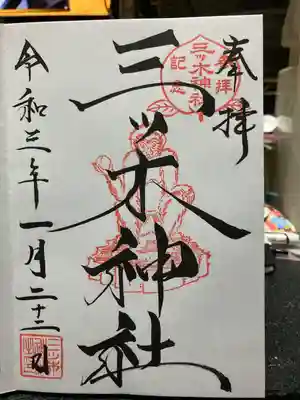 奉拝
三ッ木神社
令和三年一月二十二日
三ッ木神社
参拝
記念